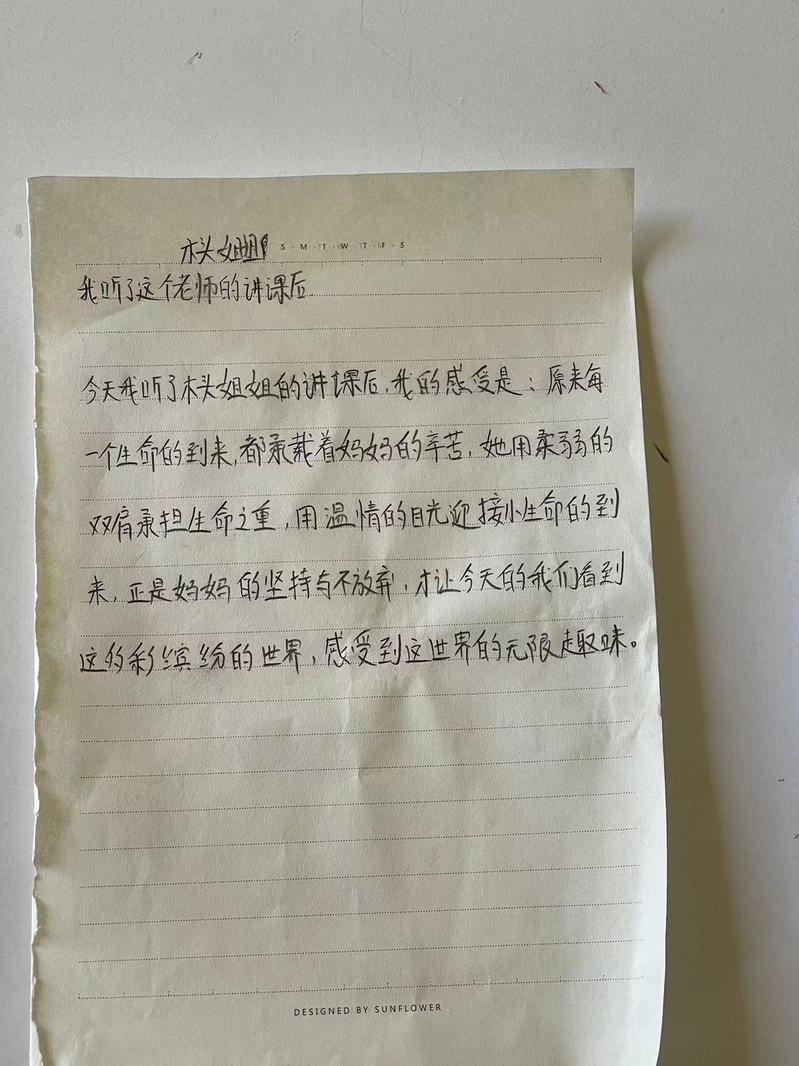 木头姐姐 S·M·T·W·T·F·S
我听了这个老师的讲课后
今天我听了木头姐姐的讲课后,我的感受是:原来每
一个生命的到来,都承载着妈妈的辛苦,她用柔弱的
双肩承担生命之重,用温情的目光迎接小生命的到
来,正是妈妈的坚持与不放弃,才让今天的我们看到
这多彩缤纷的世界,感受到这世界的无限趣味。
DESIGNED BY SUNFLOWER